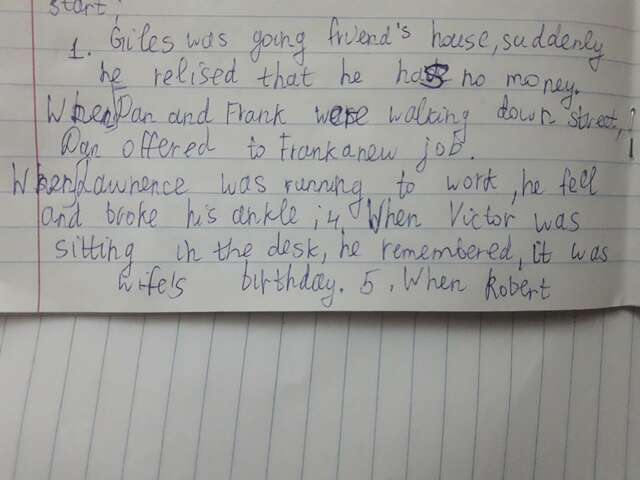 start;
1. Giles was going friend's house, suddenly
he relised that he has no money.
When Dan and Frank were walking down street,
Dan offered to Frank a new job.
When Lawrence was running to work, he fell
and broke his ankle; 4, When Victor was
sitting in the desk, he remembered, it was
wife's birthday. 5. When Robert